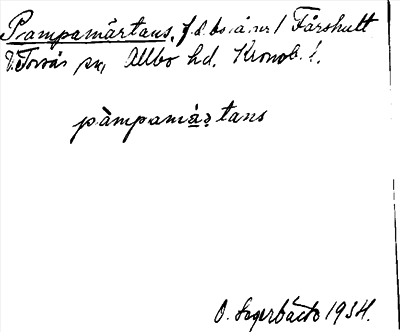 Pampamårtans, f.d. bs. å nr 1 Fårshult
V. Torsås sn, Allbo hd. Kronob. l.
pàmpamåṣtans
O. Sagerbäck 1934.